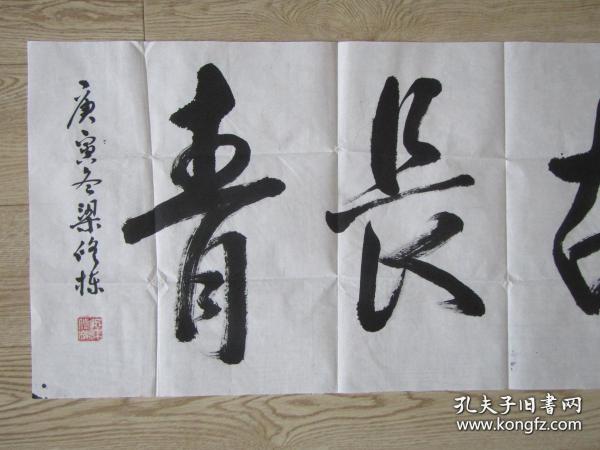 長青
庚寅冬梁修栋
孔夫子旧書网
www.kongfz.com